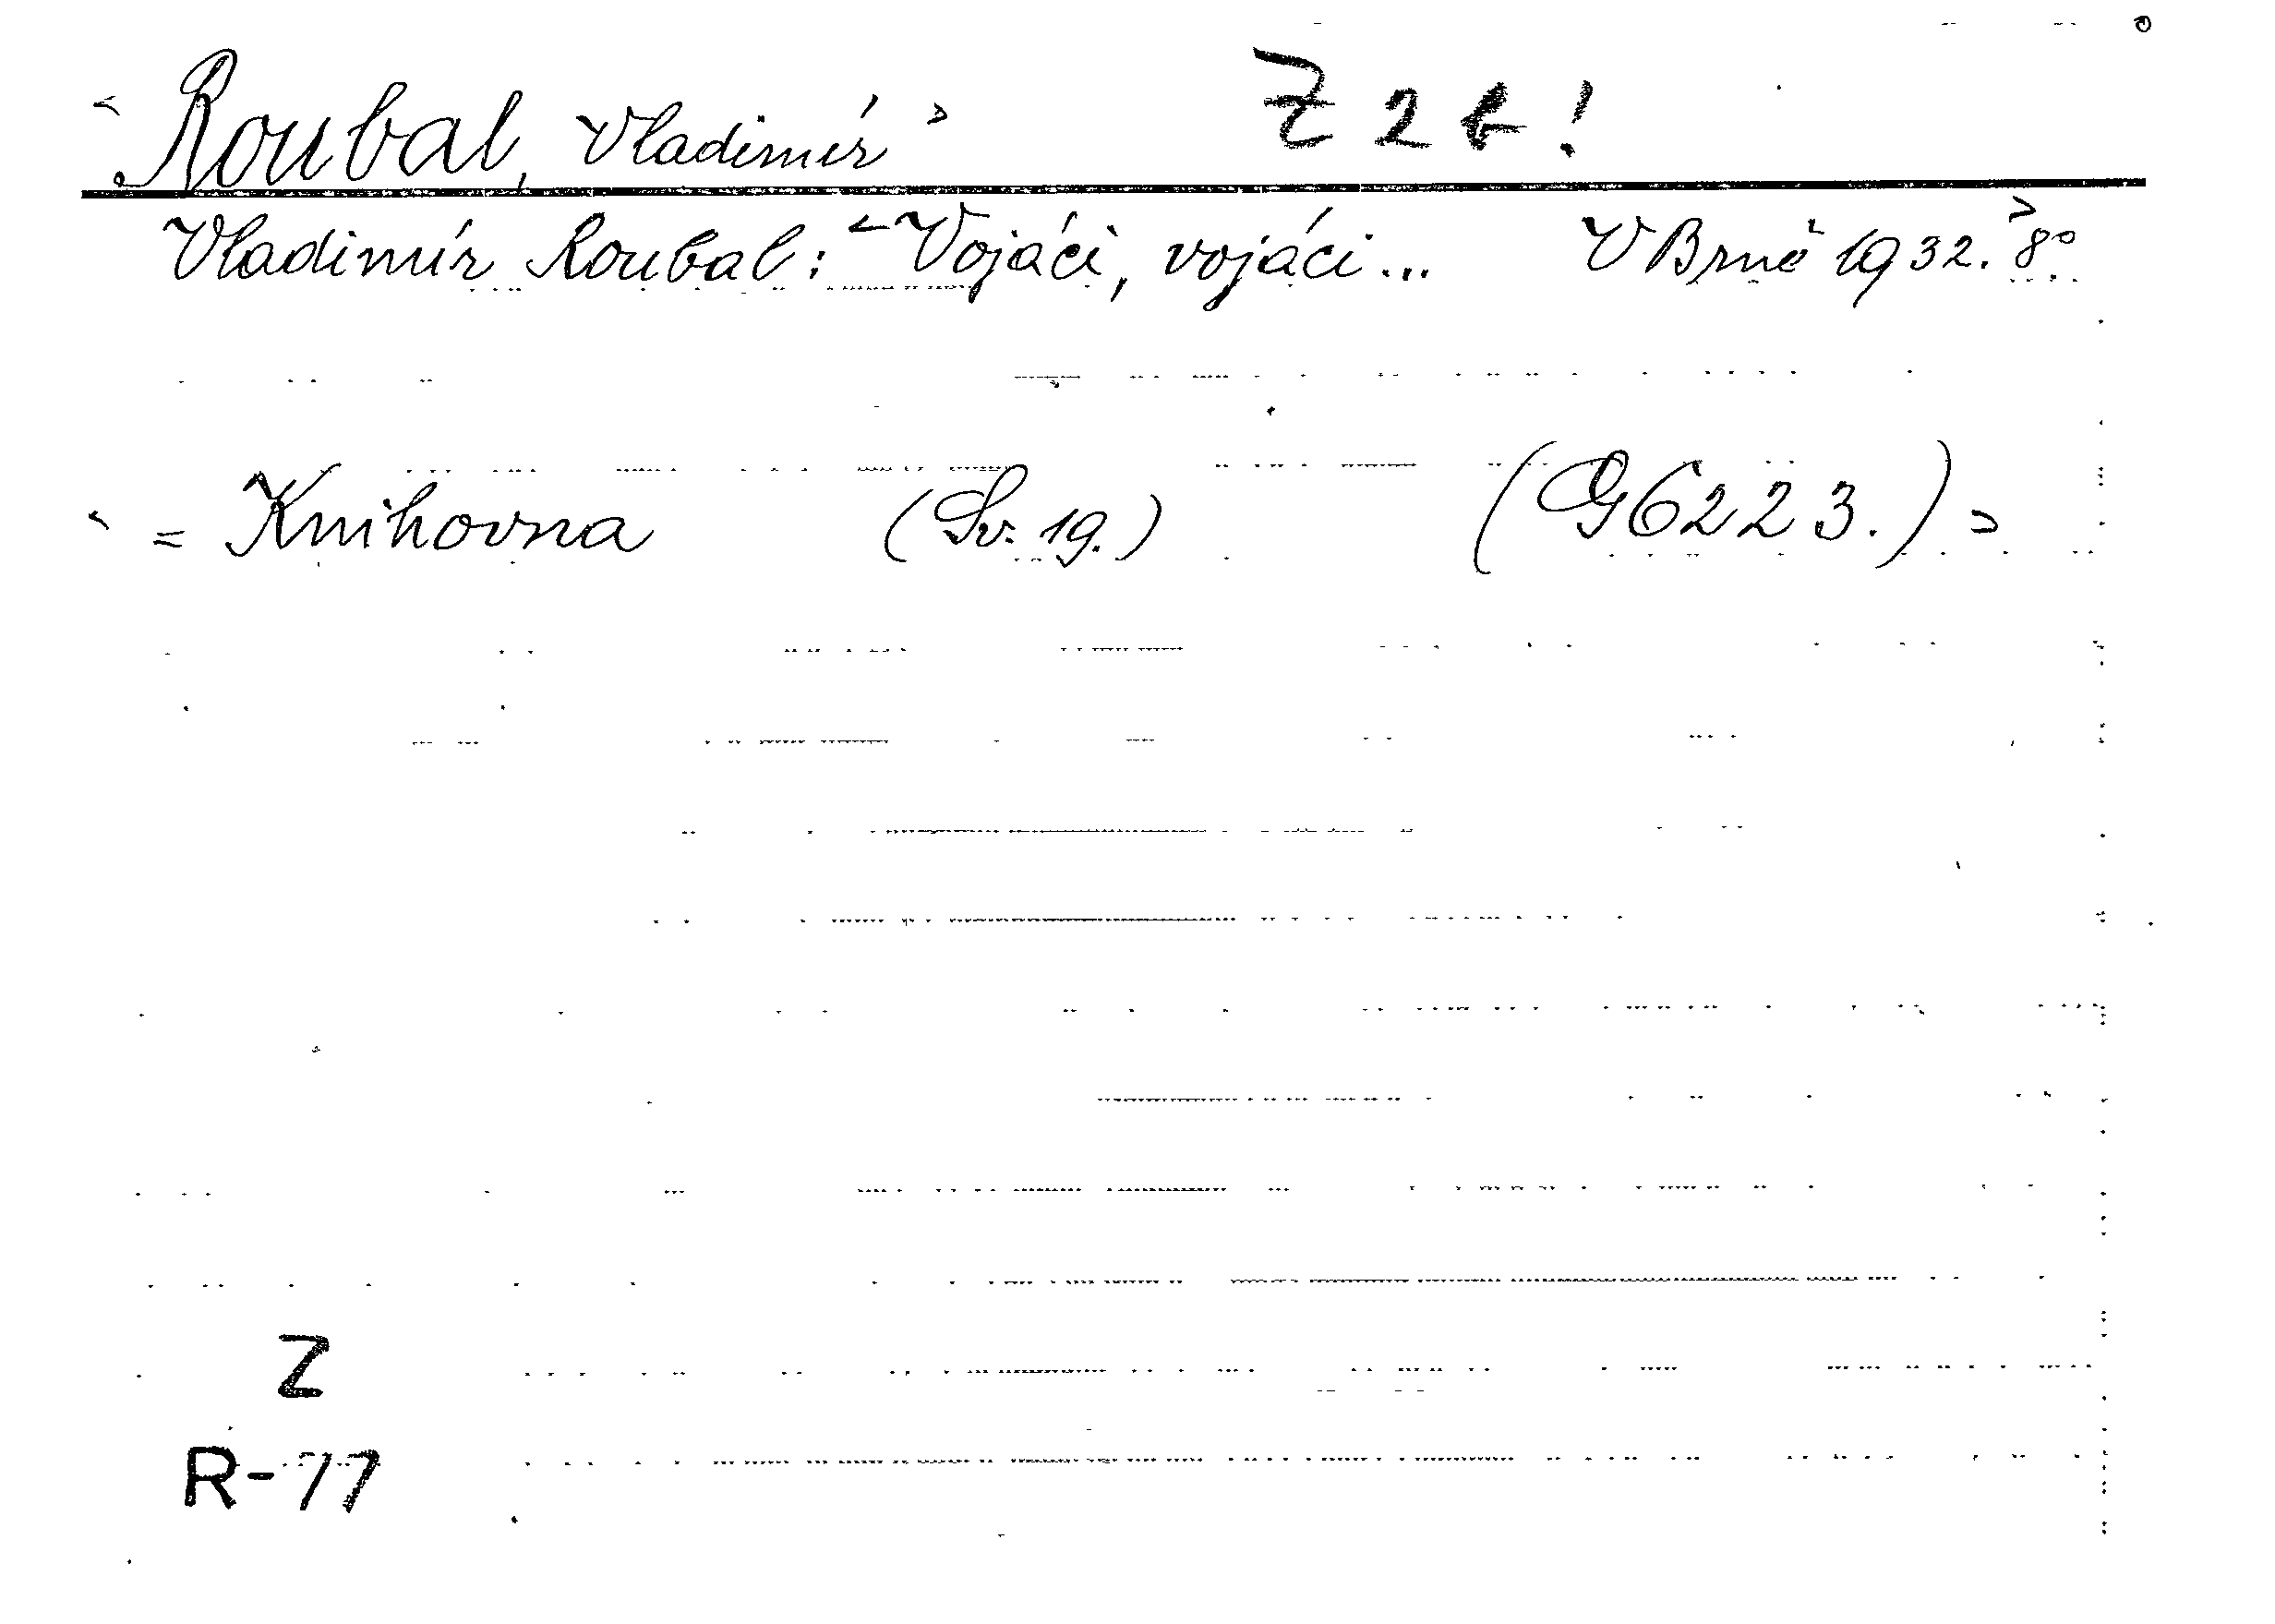 <Roubal, Vladimír> Z 2 b!
Vladimír Roubal: <Vojáci, vojáci... V Brně 1932. 8°.>
< = Knihovna (Sv. 19.) (G 6223.) >
Z
R-77